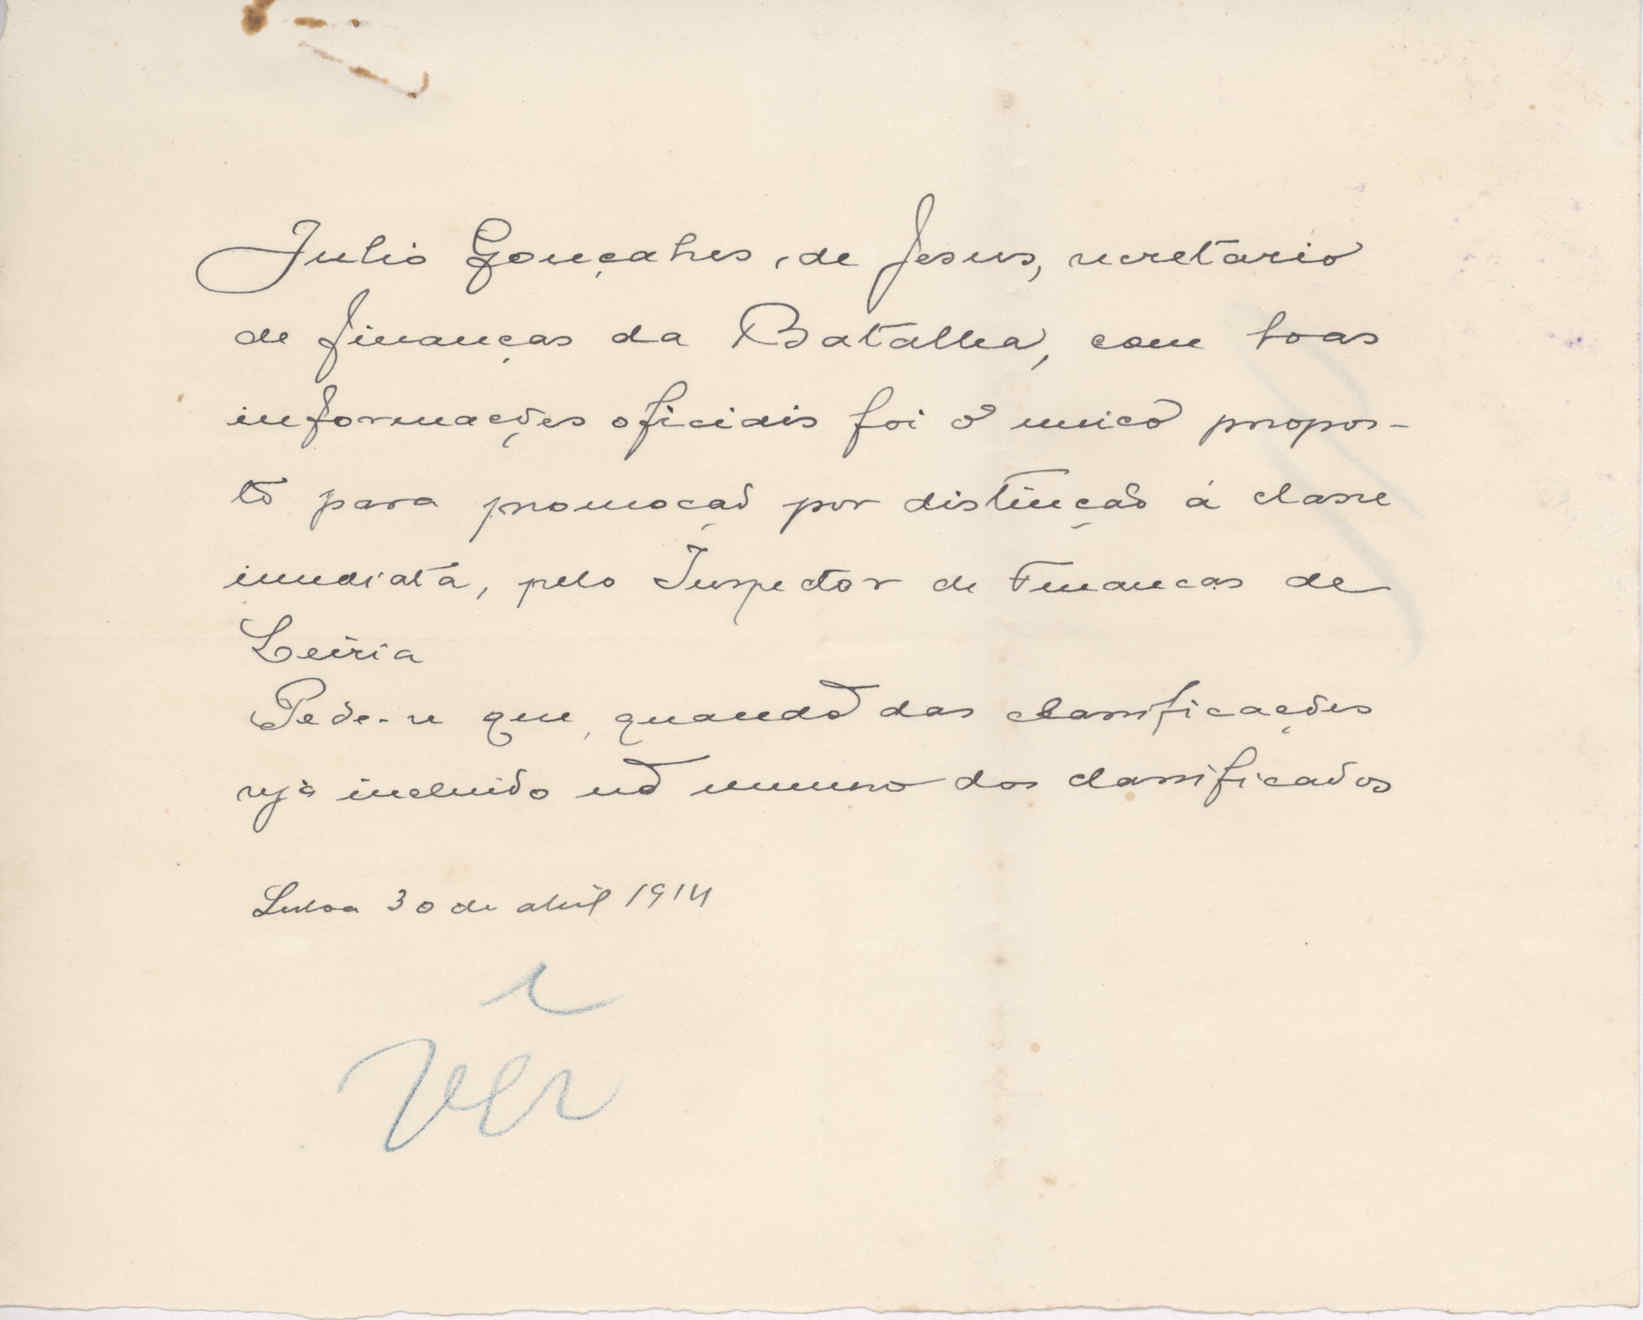 Julio Gonçalves, de Jesus, secretario
de finanças da Batalha, com boas
informações oficiais foi o unico propos-
to para promoção por distinção á classe
imediata, pelo Inspector de Finanças de
Leiria
Pede-se que, quando das classificações
seja incluido no numero dos classificados
Lisboa 30 de abril 1914
Vêr